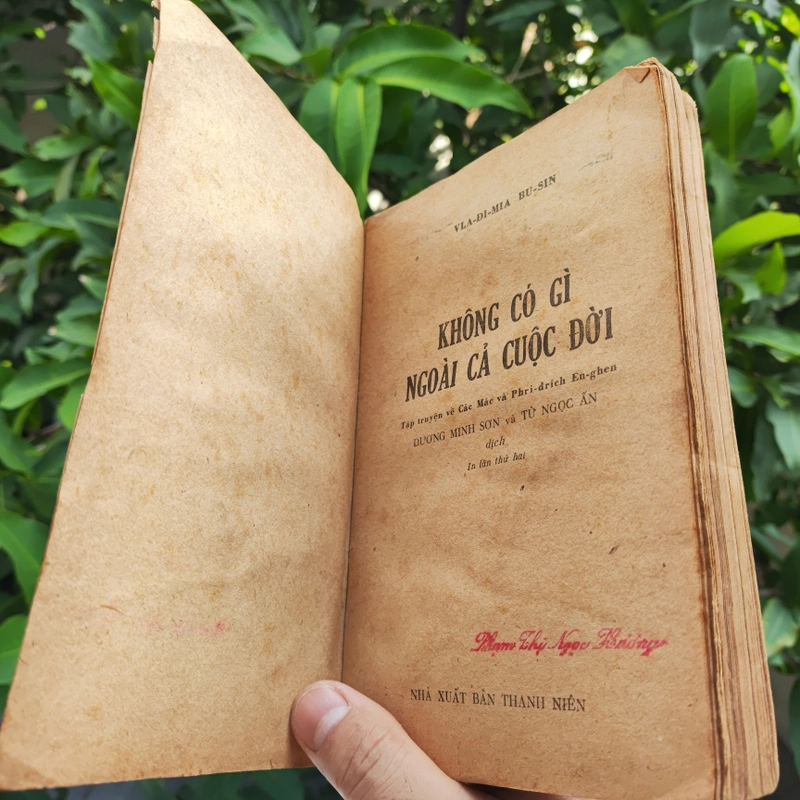 VLA-ĐI-MIA BU-SIN
KHÔNG CÓ GÌ
NGOÀI CẢ CUỘC ĐỜI
Tập truyện về Các Mác và Phri-đrích Ên-ghen
DƯƠNG MINH SƠN và TỪ NGỌC ẨN
dịch
In lần thứ hai
Phạm Thị Ngọc Hương
NHÀ XUẤT BẢN THANH NIÊN